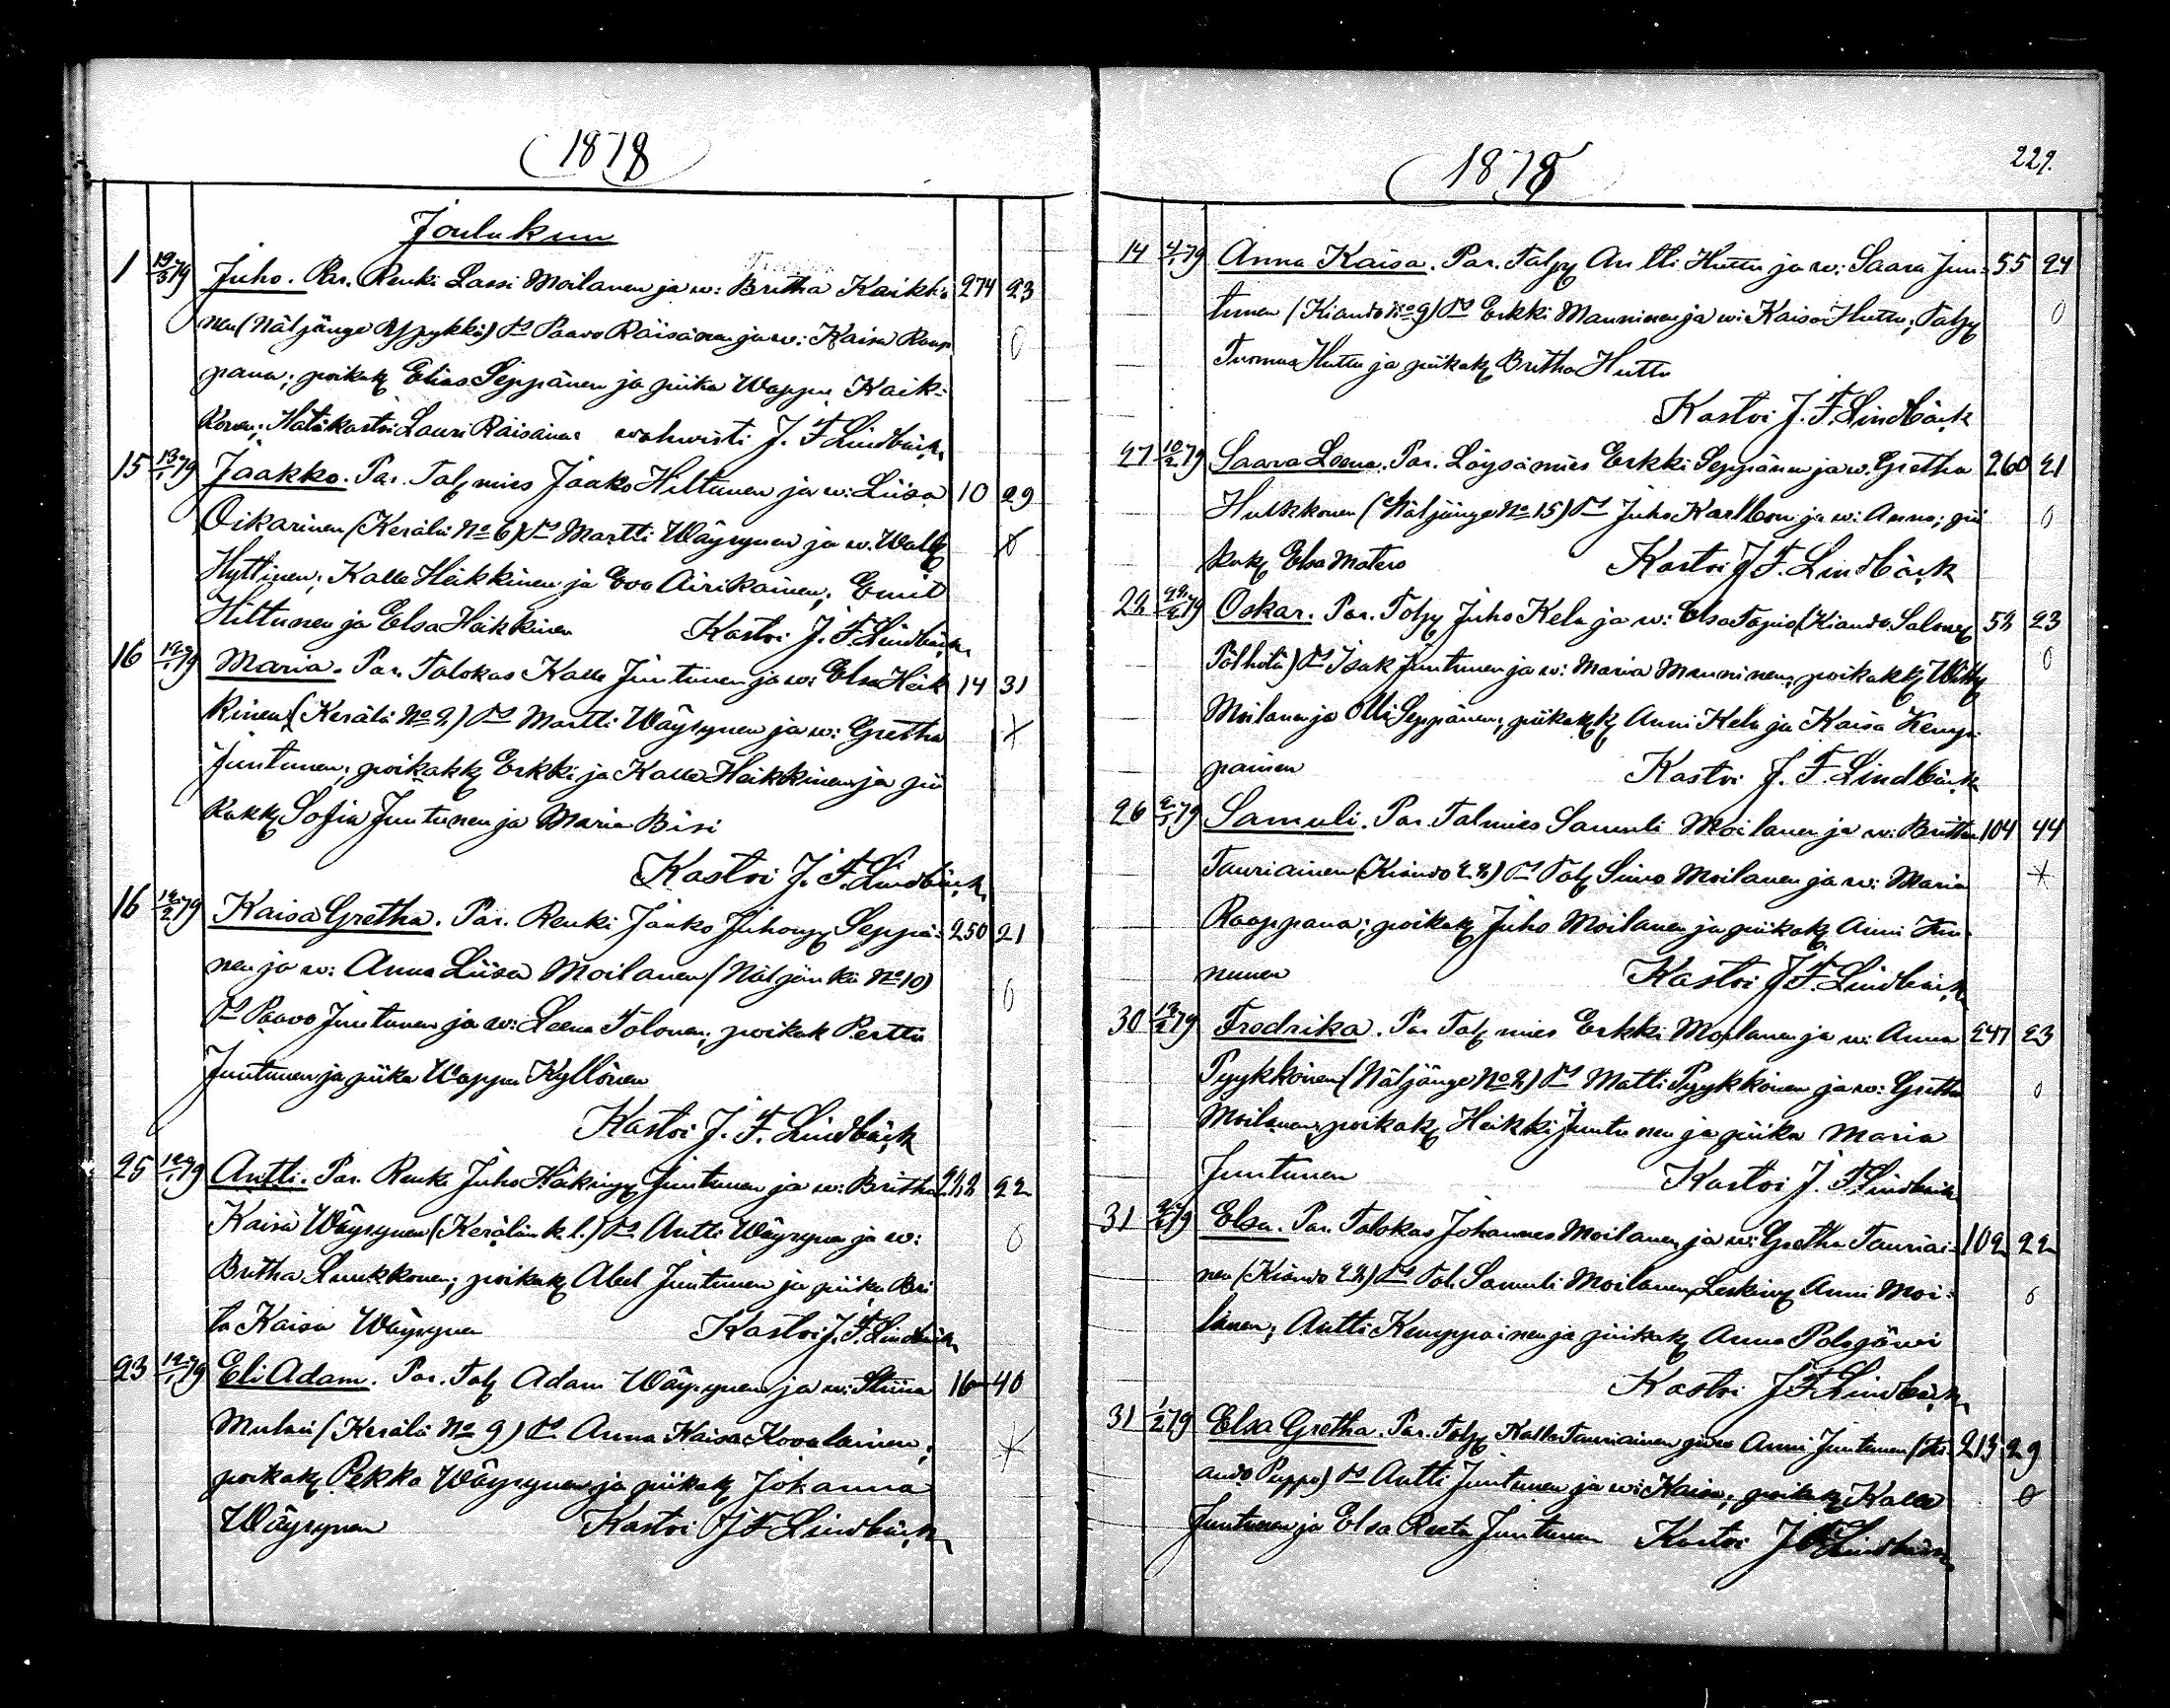 1878
Joulukuu
1 19/3 79 Juho. Par. Renki Lassi Moilanen ja w: Britha Kaikko 274 23
nen (Näljänge Pyykki) Ts Paavo Räisänen ja w: Kaisa Raap
pana; poikak Elias Seppänen ja piika Wappu Kaik- 0
konen; Hätäkastoi Lauri Räisänen wahwisti J. F. Lindbäck
15 13/1 79 Jaakko. Par. Tal mies Jaako Hiltunen ja w: Liisa 10 29
Oikarinen (Kerälä No 6) Ts Martti Wäyrynen ja w. Walb
Hyttinen; Kalle Heikkinen ja Eva Airikainen; Emil
Hiltunen ja Elsa Heikkinen Kastoi J. F. Lindbäck
16 12/1 79 Maria. Par. Talokas Kalle Juntunen ja w: Elsa Heik 14 31
kinen (Kerälä No 2) Ts Martti Wäyrynen ja w: Gretha
Juntunen; poikakk Erkki ja Kalle Heikkinen ja pii
kakk Sofia Juntunen ja Maria Bisi
Kastoi J. F. Lindbäck
16 12/2 79 Kaisa Gretha. Par. Renki Jaako Juhonp Seppä- 250 21
nen ja w: Anna Liisa Moilanen (Näljänkä No 10)
Ts Paavo Juntunen ja w: Leena Tolonen; poikak Perttu 0
Juntunen ja piika Wappu Kyllönen
Kastoi J. F. Lindbäck
25 12/1 79 Antti. Par. Renki Juho Heikinp Juntunen ja w: Britha 22
Kaisa Wäyrynen (Kerälän k. l.) Ts Antti Wäyrynen ja w: 0
Britha Luukkonen; poikak Abel Juntunen ja piika Bri
ta Kaisa Wäyrynen Kastoi J. F. Lindbäck
23 12/1 79 Eli Adam. Par. Tal Adam Wäyrynen ja w: Stiina 16 40
Mulari (Kerälä No 9) Ts Anna Kaisa Kovalainen;
poikak Pekka Wäyrynen ja piikak Johanna
Wäyrynen Kastoi J. F. Lindbäck
1878 229.
14 4/1 79 Anna Kaisa. Par. Talp Antti Huttu ja w: Saara Jun- 55 24
tunen (Kiando No 9) Ts Erkki Manninen ja w: Kaisa Huttu; Talp 0
Tuomas Huttu ja piikak Britha Huttu
Kastoi J. F. Lindbäck
27 10/2 79 Saara Leena. Par. Löysämies Erkki Seppänen ja w. Gretha 260 21
Hulkkonen (Näljänge No 15) Ts Juho Karlbom ja w: Anna; pii 0
kak Elsa Matero Kastoi J. F. Lindbäck
Oskar. Par. Talp Juho Kela ja w: Elsa Tapio (Kiando 23
Ts Isak Juntunen ja w: Maria Manninen, poikakk 0
Moilanen ja Olli Seppänen; piikakk Anni Kela ja Kaisa Kemp-
painen Kastoi J. F. Lindbäck
26 2/1 79 Samuli. Par. Talmies Samuli Moilanen ja w: Britha 104 44
Tauriainen (Kiando) Ts Tal Simo Moilanen ja w: Maria
Raappana; poikak Juho Moilanen ja piikak Anni
nunen Kastoi J. F. Lindbäck
30 12/2 79 Fredrika. Par Tal mies Erkki Moilanen ja w: Anna 247 23
Pyykkönen (Näljänge No 2) Ts Matti Pyykkönen ja w: Gretha 0
Moilanen; poikak Heikki Juntunen ja piika Maria
Juntunen Kastoi J. F. Lindbäck
31 Elsa. Par. Talokas Johannes Moilanen ja w: Gretha Tauriai- 102 22
nen (Kiando) Ts Tal. Samuli Moilanen, Leskiw Anni Moi- 0
lanen; Antti Kemppainen ja piikak Anna Polsjärwi
Kastoi J. F. Lindbäck
31 1/2 79 Elsa Gretha. Par. Talp Kalle Tauriainen ja w Anni Juntunen (Ki- 213 29
ando Puppo) Ts Antti Juntunen ja w: Kaisa; poikak Kalle 0
Juntunen ja Elsa Reeta Juntunen Kastoi J. F. Lindbäck